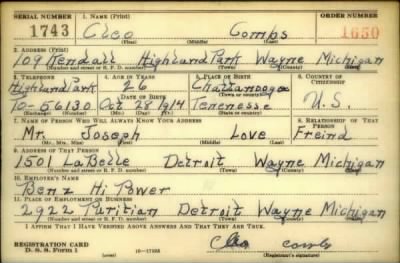 SERIAL NUMBER 1. NAME (Print) ORDER NUMBER
1743 Cleo Combs 1650
(First) (Middle) (Last)
2. ADDRESS (Print)
109 Kendall Highland Park Wayne Michigan
(Number and street or R. F. D. number) (Town) (County) (State)
3. TELEPHONE 4. AGE IN YEARS 5. PLACE OF BIRTH 6. COUNTRY OF CITIZENSHIP
Highland Park 26 Chattanooga
(Town or county)
DATE OF BIRTH
To-56130 Oct 28 1914 Tenenesse U.S.
(Mo.) (Day) (Yr.) (State or country)
7. NAME OF PERSON WHO WILL ALWAYS KNOW YOUR ADDRESS 8. RELATIONSHIP OF THAT PERSON
Mr. Joseph Love Freind
(Mr., Mrs., Miss) (First) (Middle) (Last)
9. ADDRESS OF THAT PERSON
1501 LaBelle Detroit Wayne Michigan
(Number and street or R. F. D. number) (Town) (County) (State)
10. EMPLOYER'S NAME
Benz Hi Power
11. PLACE OF EMPLOYMENT OR BUSINESS
2922 Puritian Detroit Wayne Michigan
(Number and street or R. F. D. number) (Town) (County) (State)
I AFFIRM THAT I HAVE VERIFIED ABOVE ANSWERS AND THAT THEY ARE TRUE.
REGISTRATION CARD
D. S. S. Form 1 (over) Cleo combs
(Registrant's signature)